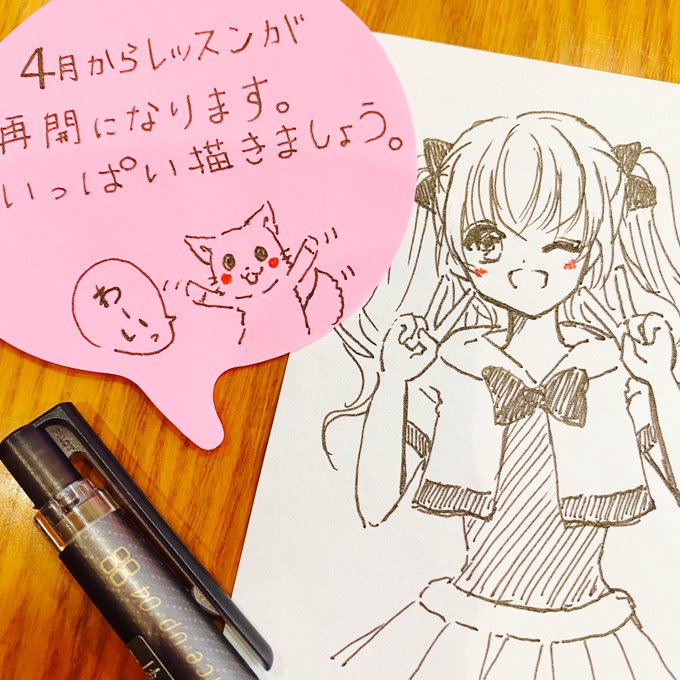 4月からレッスンが
再開になります。
いっぱい描きましょう。
わーいっ
PILOT
ce-up 04